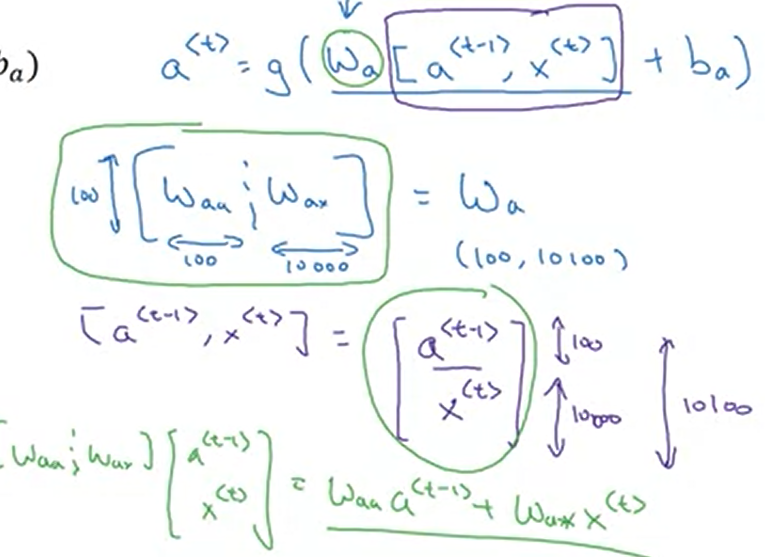 b_a)
a^{<t>} = g(W_a [a^{<t-1>}, x^{<t>}] + b_a)
100 [W_{aa} ; W_{ax}] = W_a
100 10000 (100, 10100)
[a^{<t-1>}, x^{<t>}] = [a^{<t-1>} / x^{<t>}] 100 10000 10100
[W_{aa} ; W_{ax}] [a^{<t-1>} x^{<t>}] = W_{aa} a^{<t-1>} + W_{ax} x^{<t>}